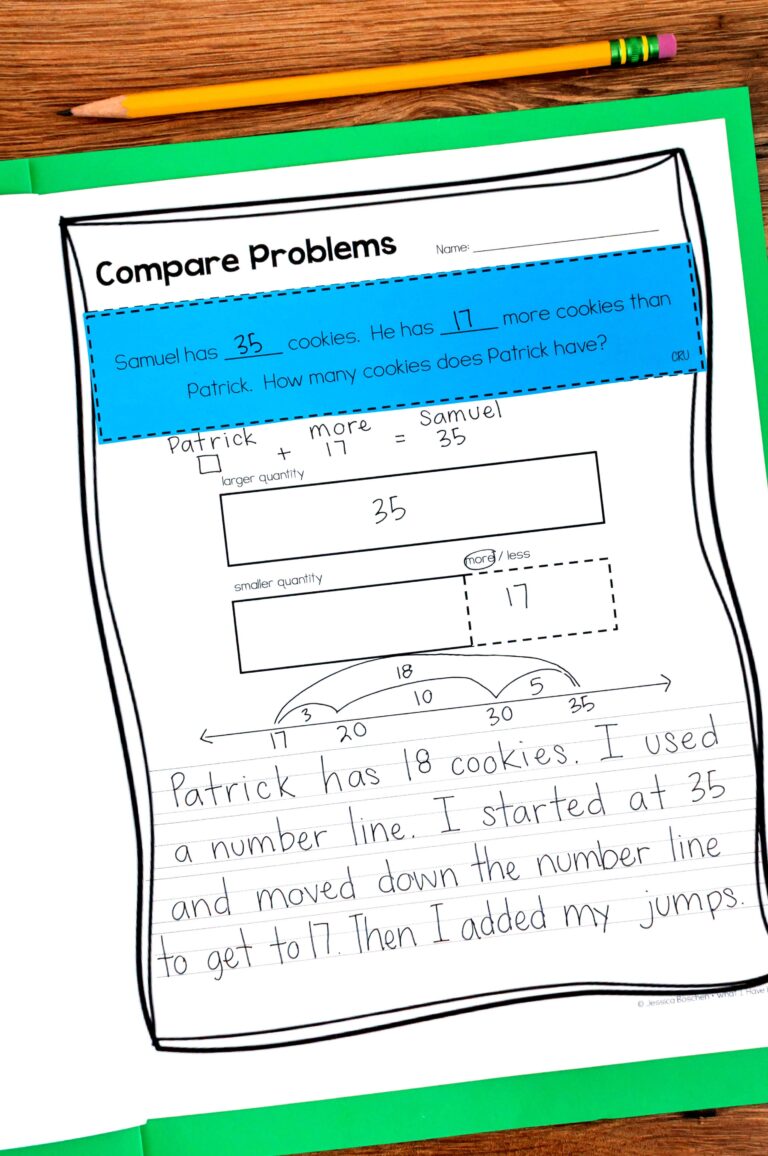 Compare Problems Name:
Samuel has 35 cookies. He has 17 more cookies than
Patrick. How many cookies does Patrick have?
CRU
Patrick + more = Samuel
17 35
larger quantity
35
smaller quantity more / less
17
18
3 10 5
17 20 30 35
Patrick has 18 cookies. I used
a number line. I started at 35
and moved down the number line
to get to 17. Then I added my jumps.
© Jessica Boschen • What I Have